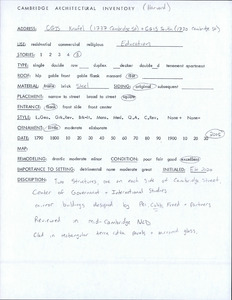 CAMBRIDGE ARCHITECTURAL INVENTORY (Harvard)
ADDRESS: CGIS Knafel (1737 Cambridge St) + CGIS South (1730 Cambridge St)
USE: residential commercial religious Educational
STORIES: 1 2 3 4 5
TYPE: single double row duplex decker double d tenement apartment
ROOF: hip gable front gable flank mansard flat
MATERIAL: brick Steel SIDING: original subsequent
PLACEMENT: narrow to street broad to street square
ENTRANCE: front side front center
STYLE: None
ORNAMENT: little moderate elaborate
DATE: 1790 1800 10 20 30 40 50 60 70 80 90 1900 10 20 30 2005
MAP:
REMODELING: drastic moderate minor CONDITION: poor fair good excellent
IMPORTANCE TO SETTING: detrimental none moderate great INITIALED:
DESCRIPTION: Two Structures, one on each side of Cambridge Street,
Center of Government + International Studies
mirror buildings designed by Pei Cobb Freed + Partners
Reviewed in Mid Cambridge NCD
Clad in rectangular terra cotta panels + curtain glass.